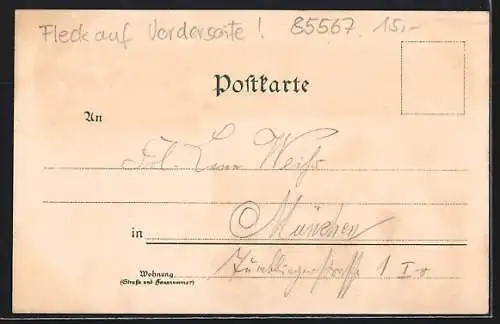 Fleck auf Vorderseite! 85567 15,-
Postkarte
An
Frl. Weiß
in München
Wohnung
(Straße und Hausnummer)
Tumblingerstraße 1 I